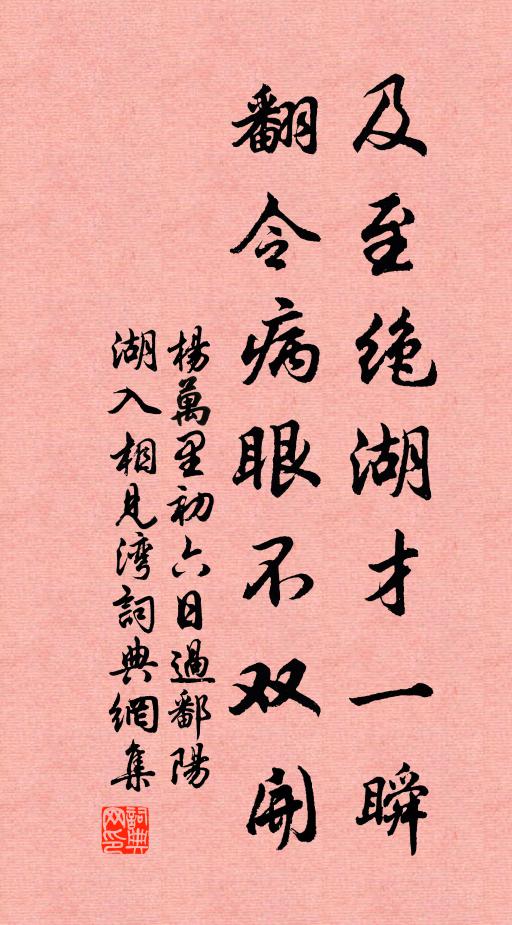 及至绝湖才一瞬
翻令病眼不双开
楊萬里初六日過鄱陽
湖入相見湾詞典網集
詞典
网印